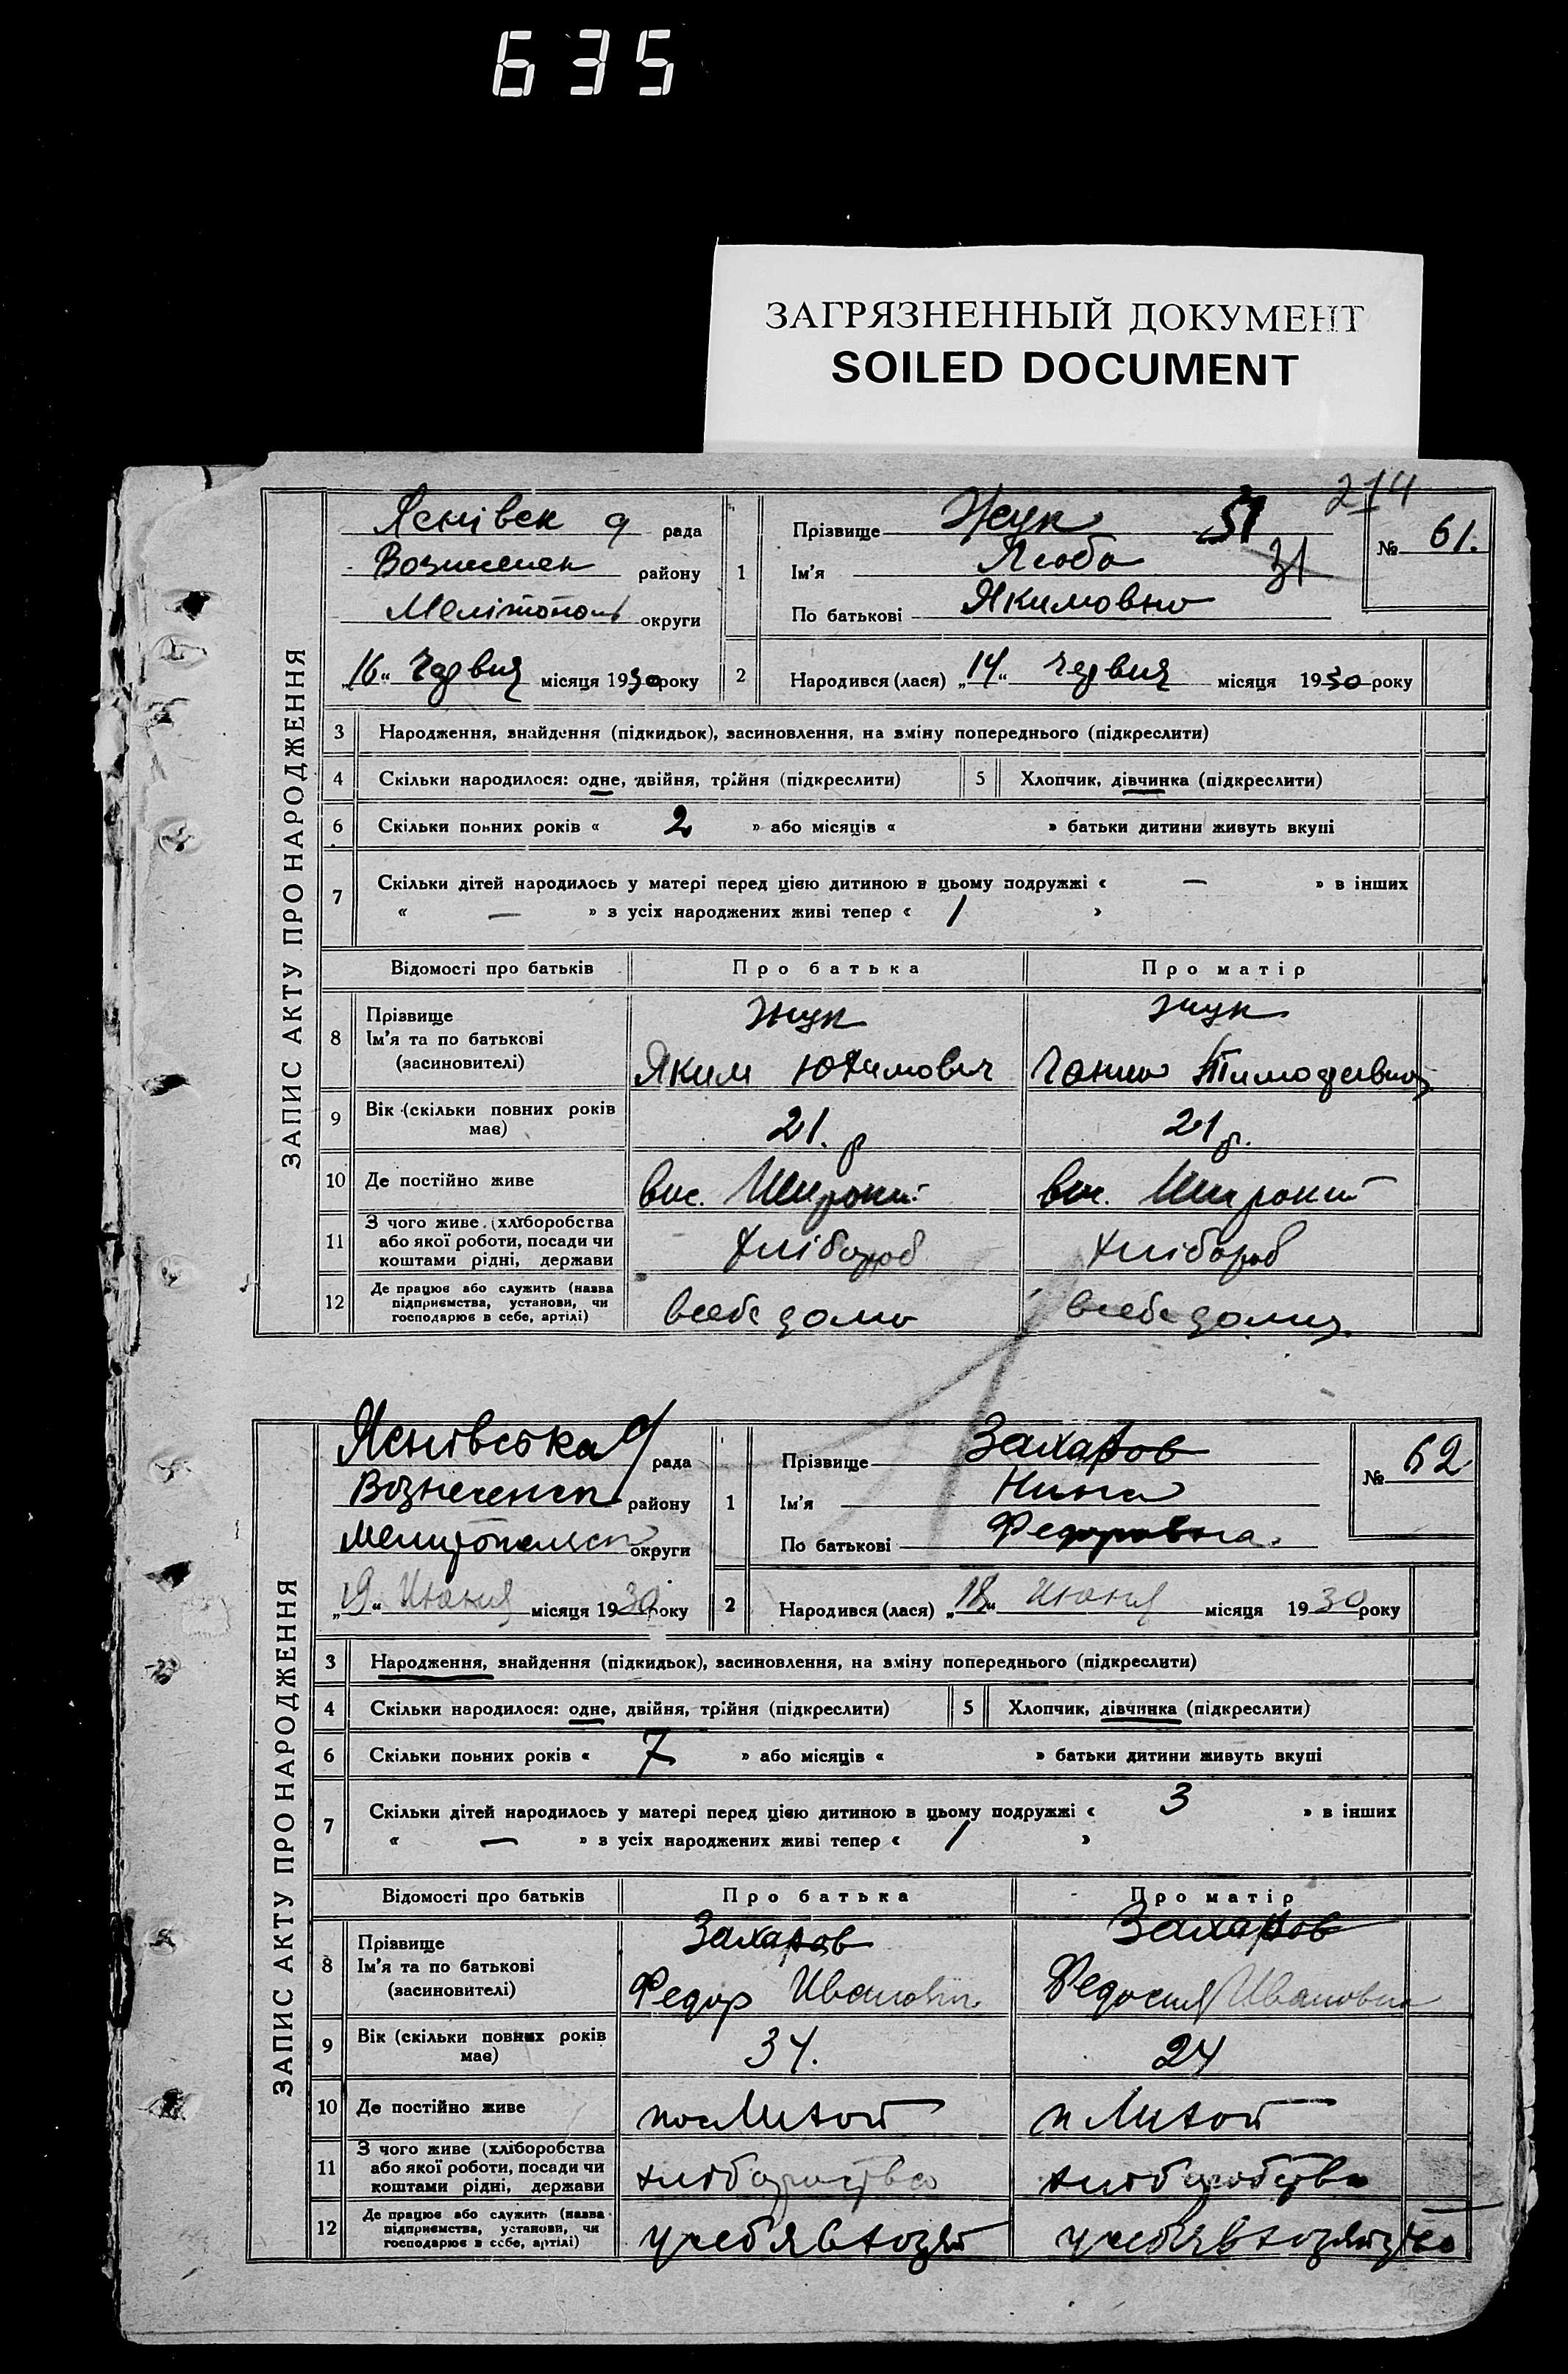 635
ЗАГРЯЗНЕННЫЙ ДОКУМЕНТ
SOILED DOCUMENT
214
ЗАПИС АКТУ ПРО НАРОДЖЕННЯ
Яснівск рада
Вознесенск району
Мелітополь округи
„16“ Червня місяця 1930 року
1 Прізвище Жук 51
Ім'я Люба 31
По батькові Якимовно
№ 61.
2 Народився (лася) „14“ червня місяця 1930 року
3 Народження, знайдення (підкидьок), засиновлення, на зміну попереднього (підкреслити)
4 Скільки народилося: одне, двійня, трійня (підкреслити) 5 Хлопчик, дівчинка (підкреслити)
6 Скільки повних років « 2 » або місяців « » батьки дитини живуть вкупі
7 Скільки дітей народилось у матері перед цією дитиною в цьому подружжі « — » в інших
« — » з усіх народжених живі тепер « 1 »
Відомості про батьків Про батька Про матір
8 Прізвище Жук Жук
Ім'я та по батькові
(засиновителі) Яким Юхимович Ганна Тимофеевна
9 Вік (скільки повних років має) 21.р 21 р.
10 Де постійно живе вис. Широкий вис. Широкий
11 З чого живе (хліборобства
або якої роботи, посади чи
коштами рідні, держави хлібороб хлібороб
12 Де працює або служить (назва
підприємства, установи, чи
господарює в себе, артілі) всебе дома всебе дома
ЗАПИС АКТУ ПРО НАРОДЖЕННЯ
Яснівська рада
Вознесенск району
Мелитопольск округи
„19“ Июня місяця 1930 року
1 Прізвище Захаров
Ім'я Нина
По батькові Федоровна.
№ 62
2 Народився (лася) „18“ Июня місяця 1930 року
3 Народження, знайдення (підкидьок), засиновлення, на зміну попереднього (підкреслити)
4 Скільки народилося: одне, двійня, трійня (підкреслити) 5 Хлопчик, дівчинка (підкреслити)
6 Скільки повних років « 7 » або місяців « » батьки дитини живуть вкупі
7 Скільки дітей народилось у матері перед цією дитиною в цьому подружжі « 3 » в інших
« — » з усіх народжених живі тепер « 1 »
Відомості про батьків Про батька Про матір
8 Прізвище Захаров Захаров
Ім'я та по батькові
(засиновителі) Федор Иванович Федосия Ивановна
9 Вік (скільки повних років має) 34. 24
10 Де постійно живе
11 З чого живе (хліборобства
або якої роботи, посади чи
коштами рідні, держави хліборобство хліборобство
12 Де працює або служить (назва
підприємства, установи, чи
господарює в себе, артілі)